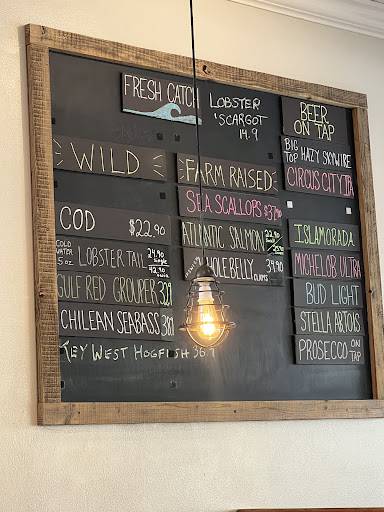 FRESH CATCH
LOBSTER
'SCARGOT
14.9
BEER
ON TAP
WILD
FARM RAISED
BIG
TOP HAZY SKYWIRE
CIRCUS CITY IPA
SEA SCALLOPS $37.90
COD $22.90
ATLANTIC SALMON 22.90
ISLAMORADA
COLD
WATER
5 oz LOBSTER TAIL 24.90
single
42.90
WHOLE BELLY CLAMS 34.90
MICHELOB ULTRA
GULF RED GROUPER
BUD LIGHT
CHILEAN SEABASS
STELLA ARTOIS
KEY WEST HOGFISH 36.9
PROSECCO ON
TAP